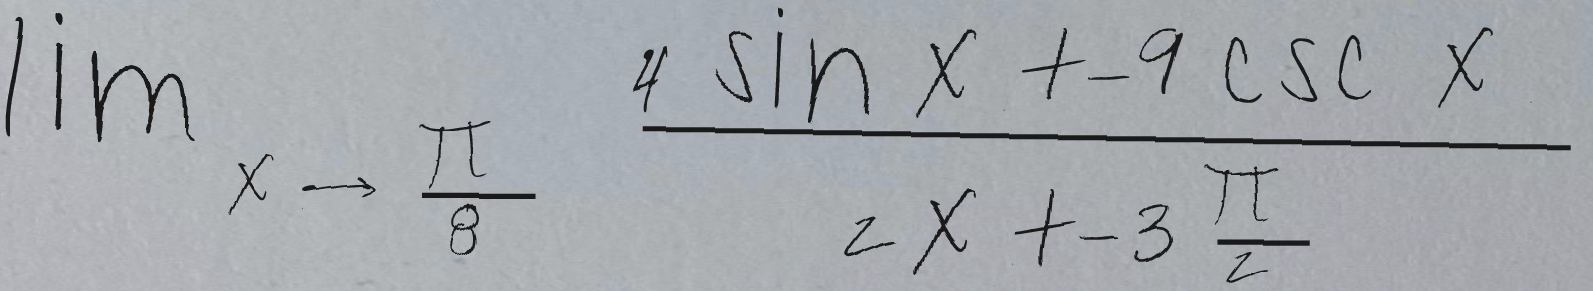 lim x → π/8 (4 sin x + -9 csc x)/(2x + -3 π/2)